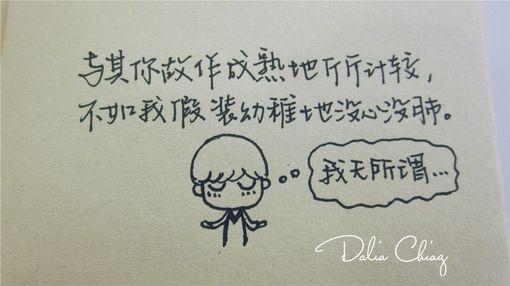 与其你故作成熟地斤斤计较，
不如我假装幼稚地没心没肺。
我无所谓...
Dalia Chiaq